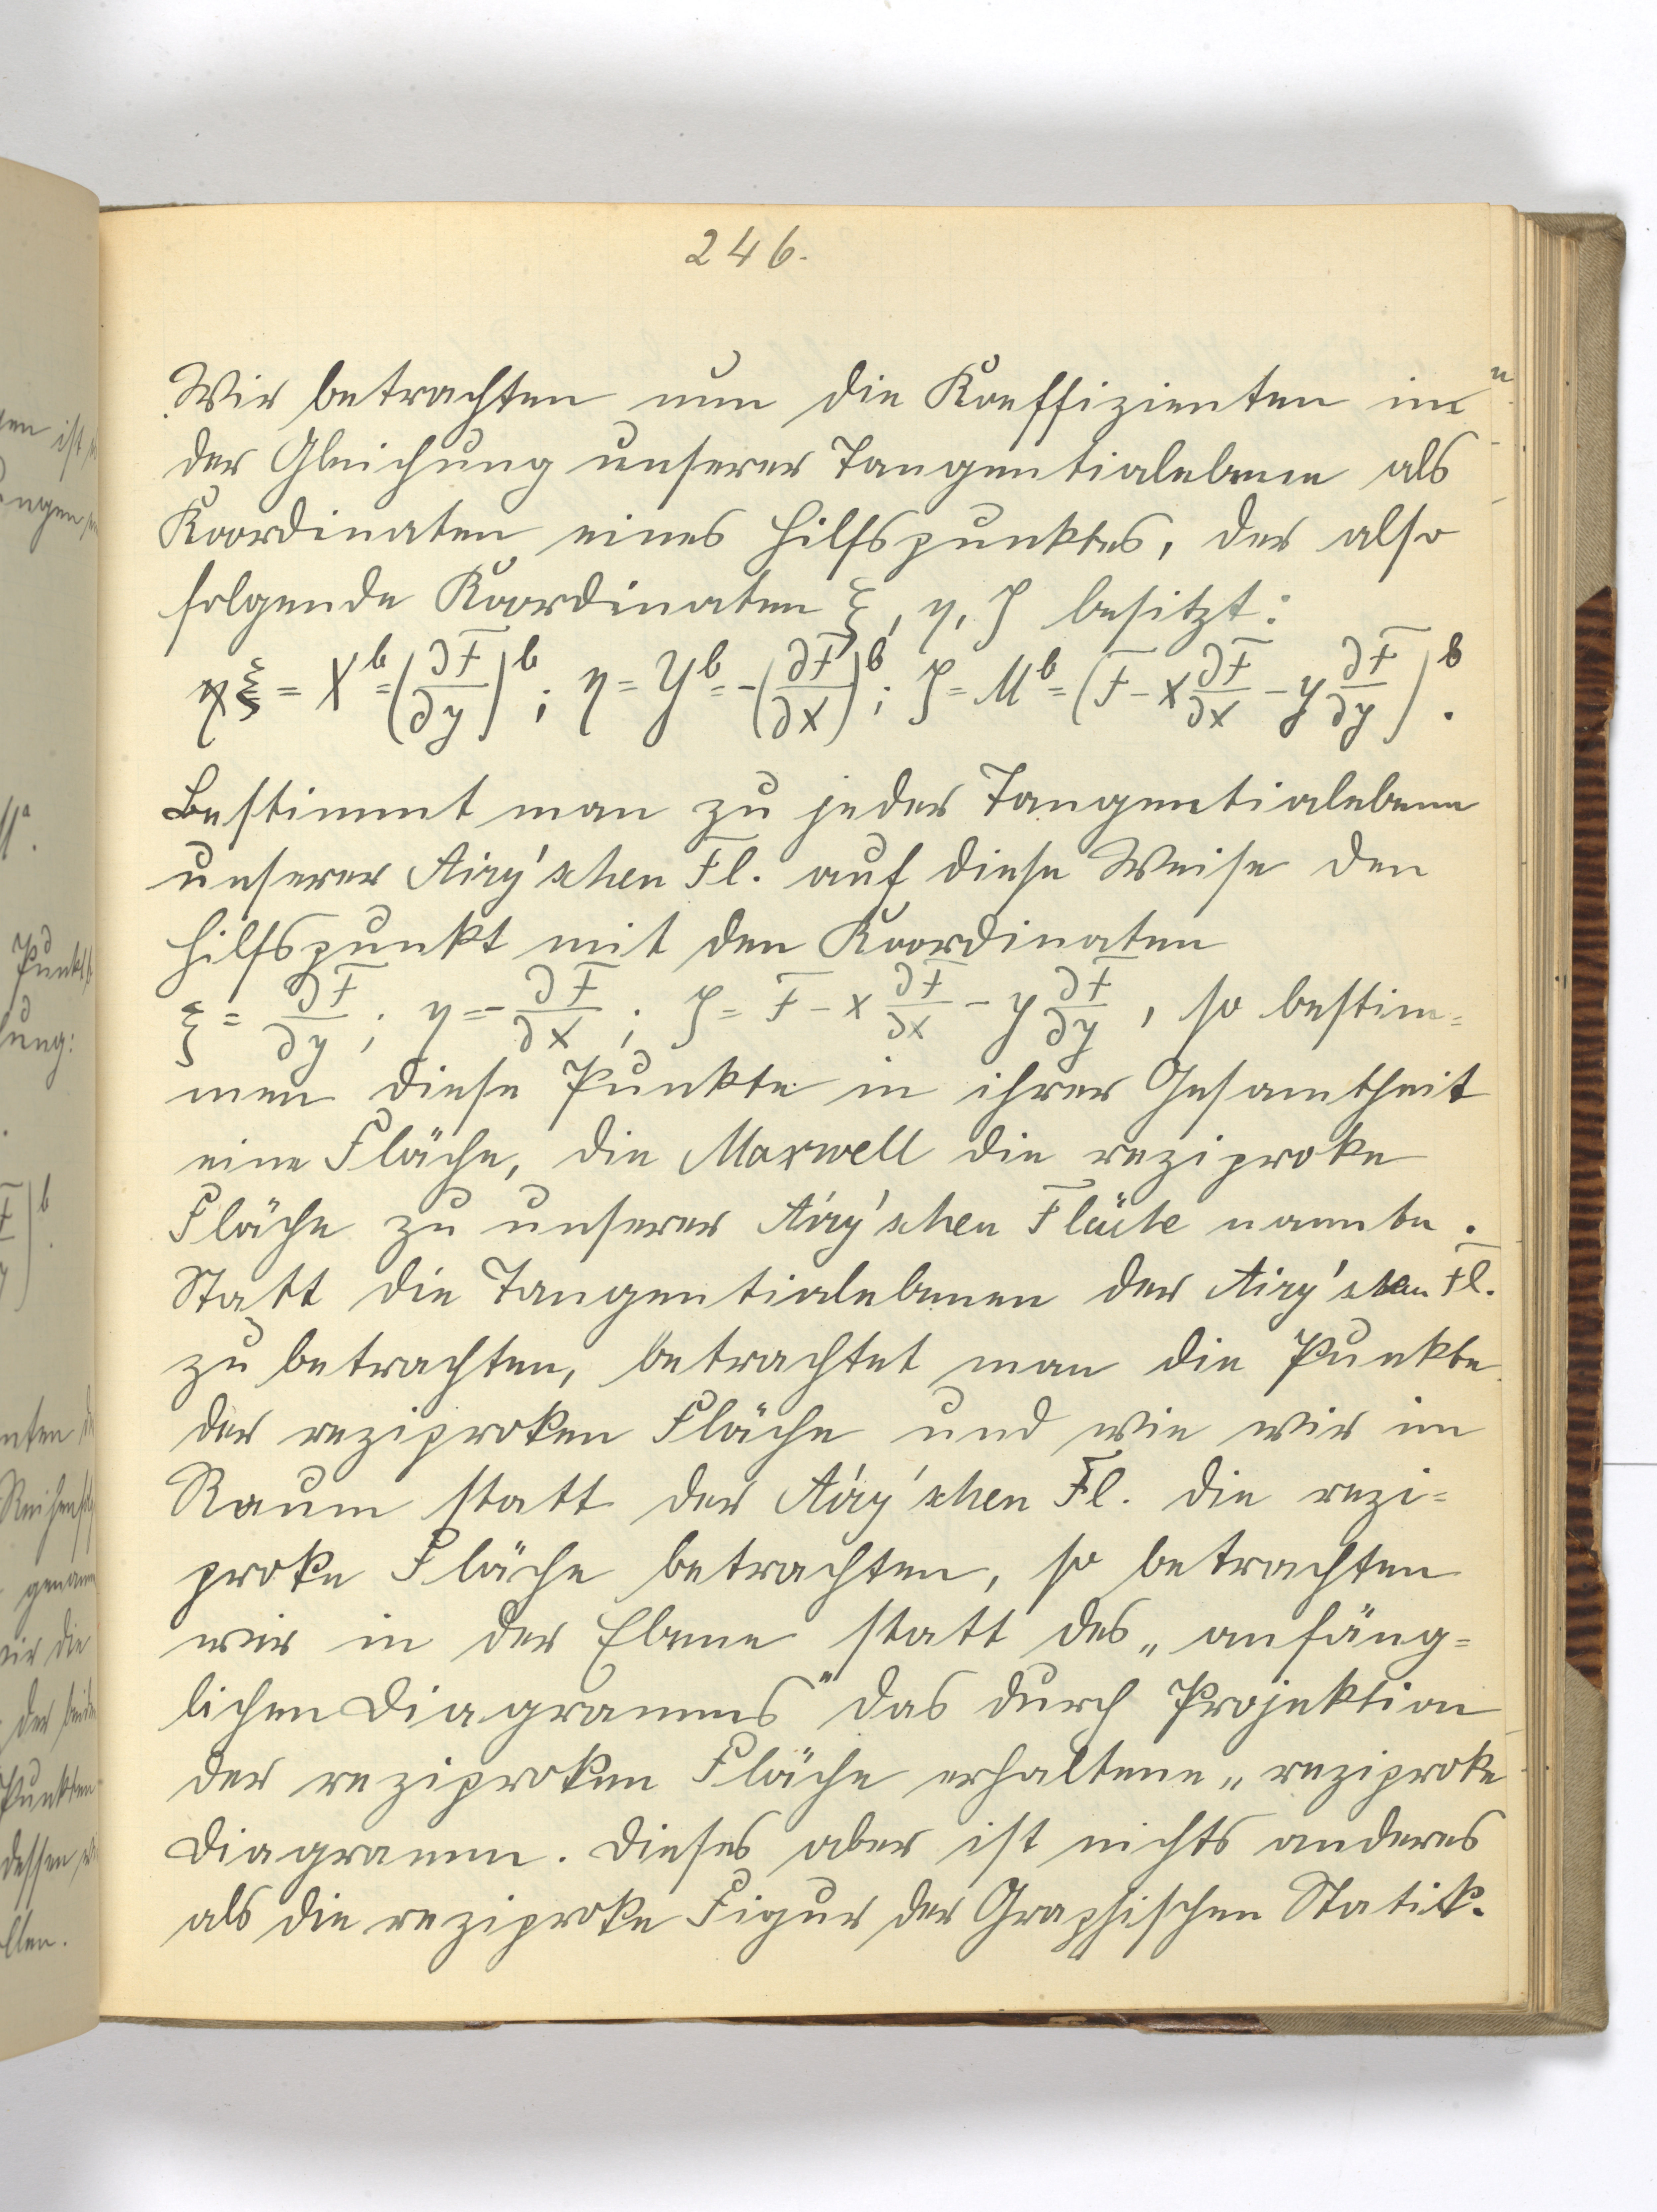 246.
Wir betrachten nun die Koeffizienten in
der Gleichung unserer Tangentialebene als
Koordinaten eines Hilfspunktes, der also
folgende Koordinaten ξ, η, ζ besitzt:
ξ = X^b = (∂F/∂y)^b ; η = Y^b = -(∂F/∂x)^b ; ζ = M^b = (F - x ∂F/∂x - y ∂F/∂y)^b .
Bestimmt man zu jeder Tangentialebene
unserer Airy'schen Fl. auf diese Weise den
Hilfspunkt mit den Koordinaten
ξ = ∂F/∂y ; η = - ∂F/∂x ; ζ = F - x ∂F/∂x - y ∂F/∂y , so bestim=
men diese Punkte in ihrer Gesamtheit
eine Fläche, die Maxwell die reziproke
Fläche zu unserer Airy'schen Fläche nannte.
Statt die Tangentialebenen der Airy'schen Fl.
zu betrachten, betrachtet man die Punkte
der reziproken Fläche und wie wir im
Raum statt der Airy'schen Fl. die rezi=
proke Fläche betrachten, so betrachten
wir in der Ebene statt des „anfäng=
lichen Diagramms" das durch Projektion
der reziproken Fläche erhaltene „reziproke
Diagramm. Dieses aber ist nichts anderes
als die reziproke Figur der Graphischen Statik.